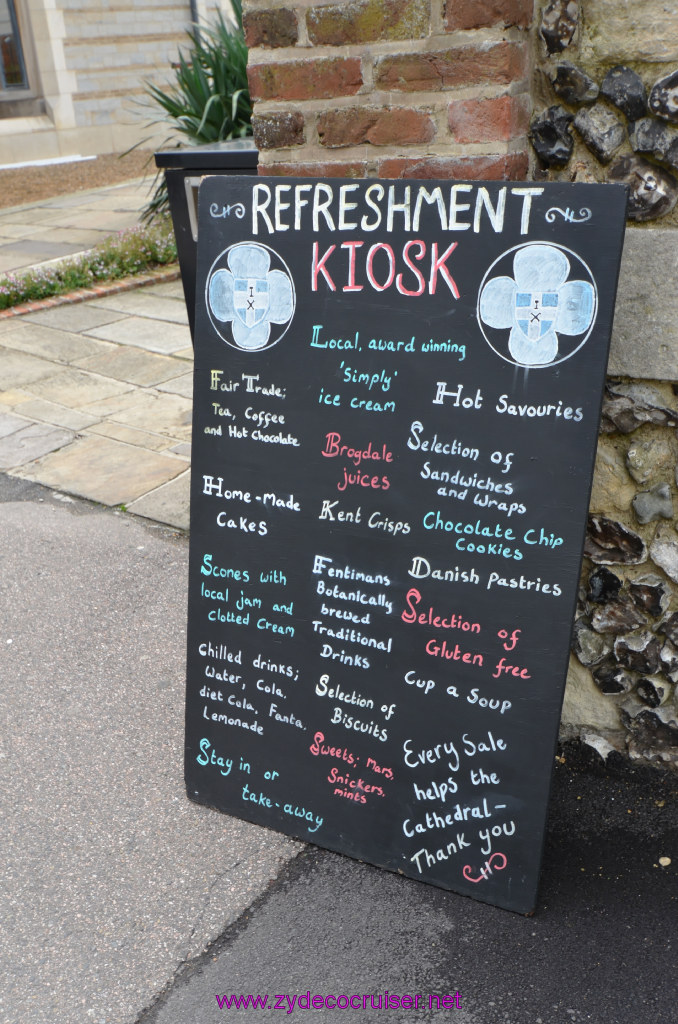 REFRESHMENT
KIOSK
I
X
I
X
Local, award winning
'Simply'
ice cream
Fair Trade;
Tea, Coffee
and Hot Chocolate
Hot Savouries
Brogdale
juices
Selection of
Sandwiches
and Wraps
Home-Made
Cakes
Kent Crisps
Chocolate Chip
Cookies
Scones with
local jam and
Clotted Cream
Fentimans
Botanically
brewed
Traditional
Drinks
Danish Pastries
Selection of
Gluten free
Chilled drinks;
Water, Cola,
diet Cola, Fanta,
Lemonade
Selection of
Biscuits
Cup a Soup
Stay in or
take-away
Sweets; Mars,
Snickers,
mints
Every Sale
helps the
Cathedral-
Thank you
www.zydecocruiser.net